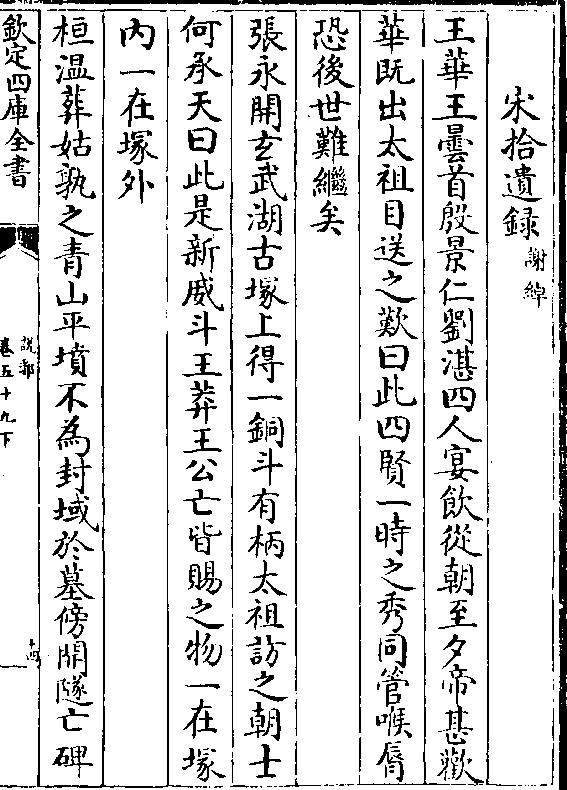 宋拾遺録 謝綽
王華王曇首殷景仁劉湛四人宴飲從朝至夕帝甚歡
華既出太祖目送之歎曰此四賢一時之秀同管喉脣
恐後世難繼矣
張永開玄武湖古塚上得一銅斗有柄太祖訪之朝士
何承天曰此是新威斗王莽王公亡皆賜之物一在塚
内一在塚外
桓温葬姑孰之青山平墳不為封域於墓傍開隧亡碑
欽定四庫全書
説郛
卷五十九下
十四